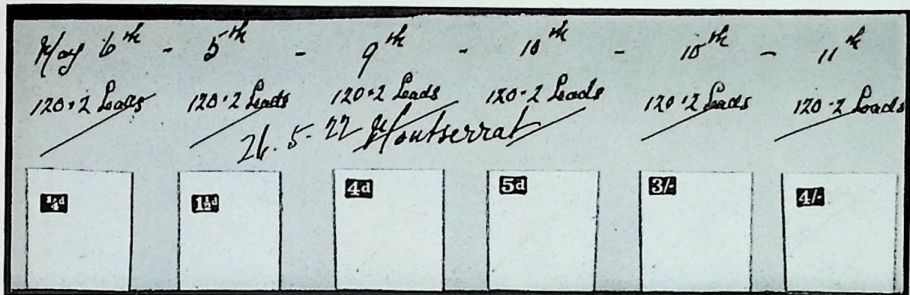 May 6th - 5th - 9th - 10th - 10th - 11th
120+2 Leads 120+2 Leads 120+2 Leads 120-2 Leads 120+2 Leads 120-2 Leads
26.5-22 Montserrat
¼d 1½d 4d 5d 3/- 4/-